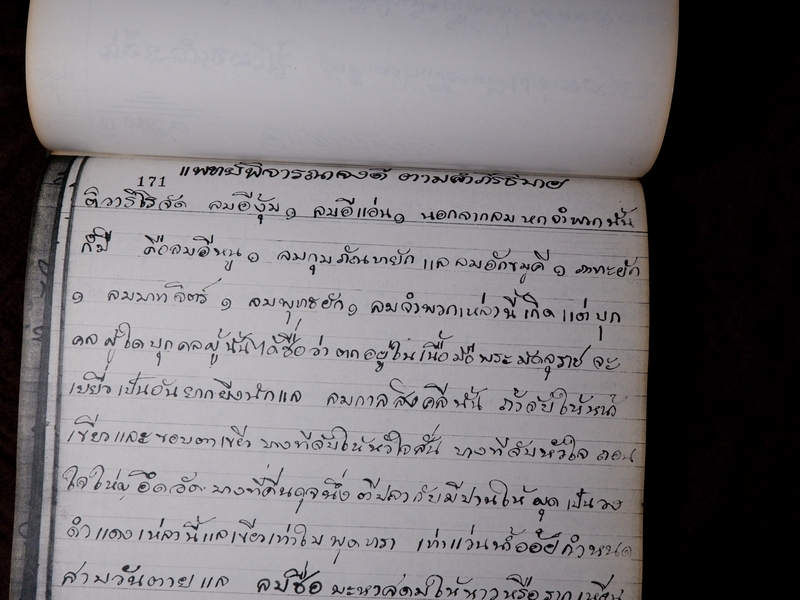 171 แพทย์พิจารณาจงดี ตามคำภีร์อธิบาย
ลมอีงุ้ม ๑ ลมอีแอ่น ๑ นอกจากลม หกจำพวกนั้น
ก็มี คือลมอีหนู ๑ ลมกุมภัณฑยักษ แล ลมอัศมุคี ๑
๑ ลมบาทจิตร์ ๑ ลมพุทธยักษ ๑ ลมจำพวกเหล่านี้เกิดแต่บุก
คล ผู้ใด บุกคลผู้นั้นได้ชื่อว่า ตกอยู่ในเนื้อมือพระมัจจุราช จะ
เยียวเป็นอันยากยิ่งนักแล ลมกาลสิงคลีนั้น ถ้าจับให้หน้า
เขียวและขอบตาเขียว บางทีจับให้หัวใจสั่น บางทีจับหัวใจ ถอน
ใจใหญ่ อึดอัด บางทีดิ้นดุจนึ่ง ตีปลา กับมีปานให้ผุดเป็นวง
ดำแดงเหล่านี้แลเขียวเท่าใบพุดทรา เท่าแว่นน้ำอ้อยกำหนด
สามวันตายแล ลมชื่อมะหาสดมให้หาวหรือราก